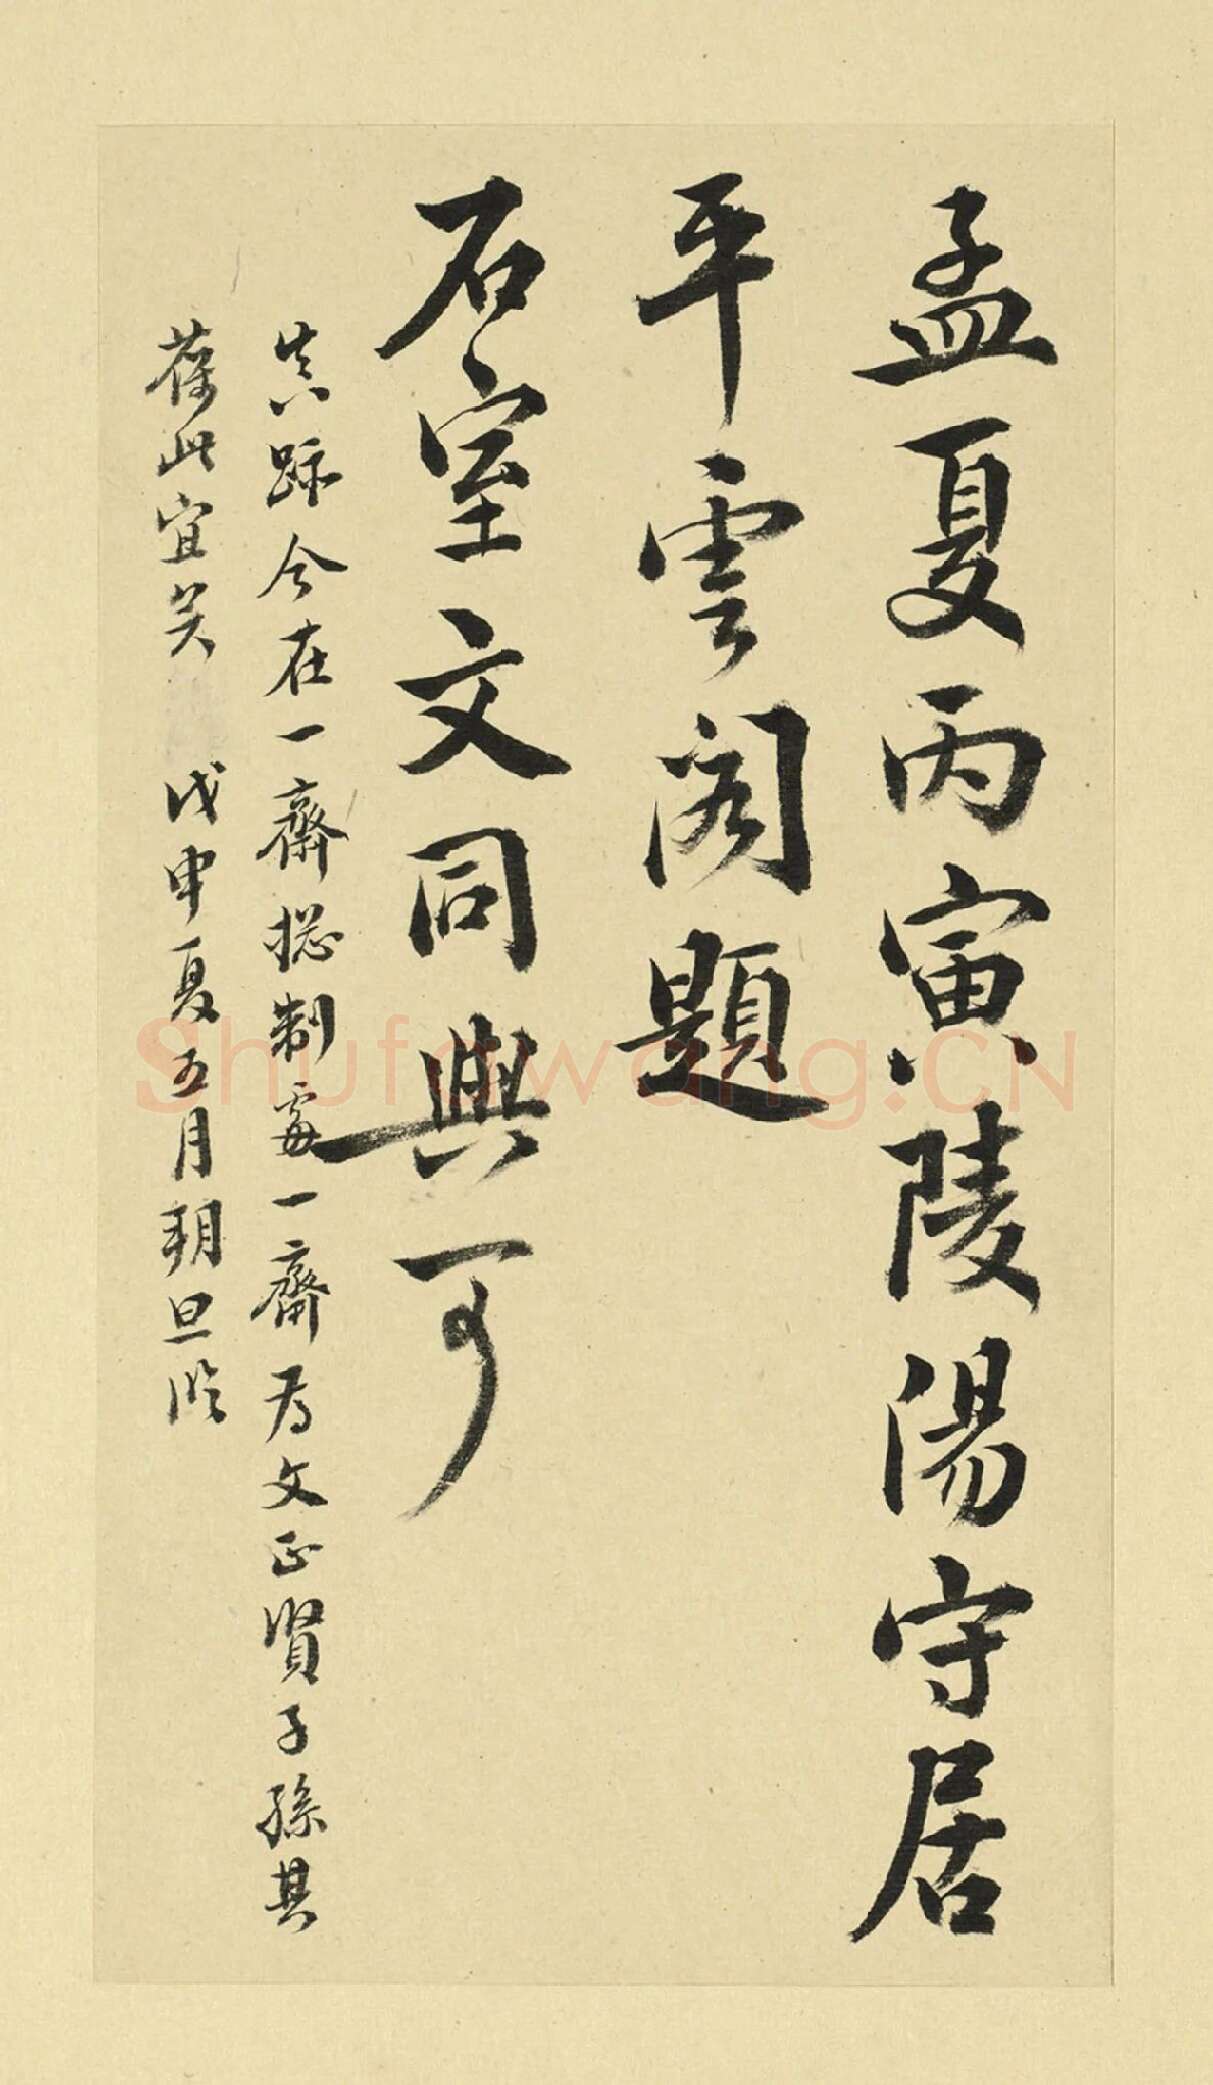 孟夏丙寅陵陽守居
平雲閣題
石室文同與可
真跡今在一齋總制處一齋為文正賢子孫其
葆此宜矣 戊申夏五月朔旦臨
Shufawang.CN